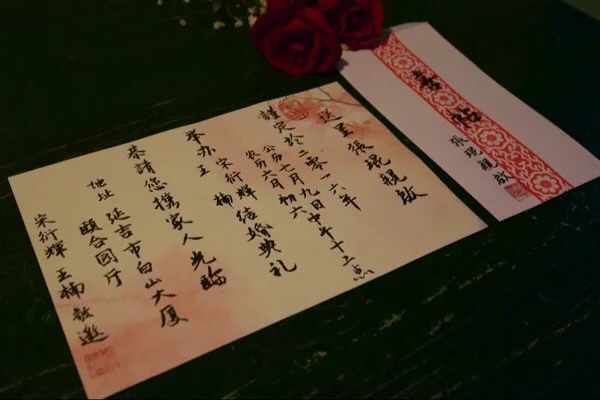 送呈張琨親啟
謹定於二零一六年
公历七月九日中午十二点
农历六月初六
举办
宋衍輝
王楠
結婚典礼
恭請您携家人光臨
地址
延吉市白山大厦
頤合園厅
宋衍輝王楠敬邀
喜帖
張琨親啟